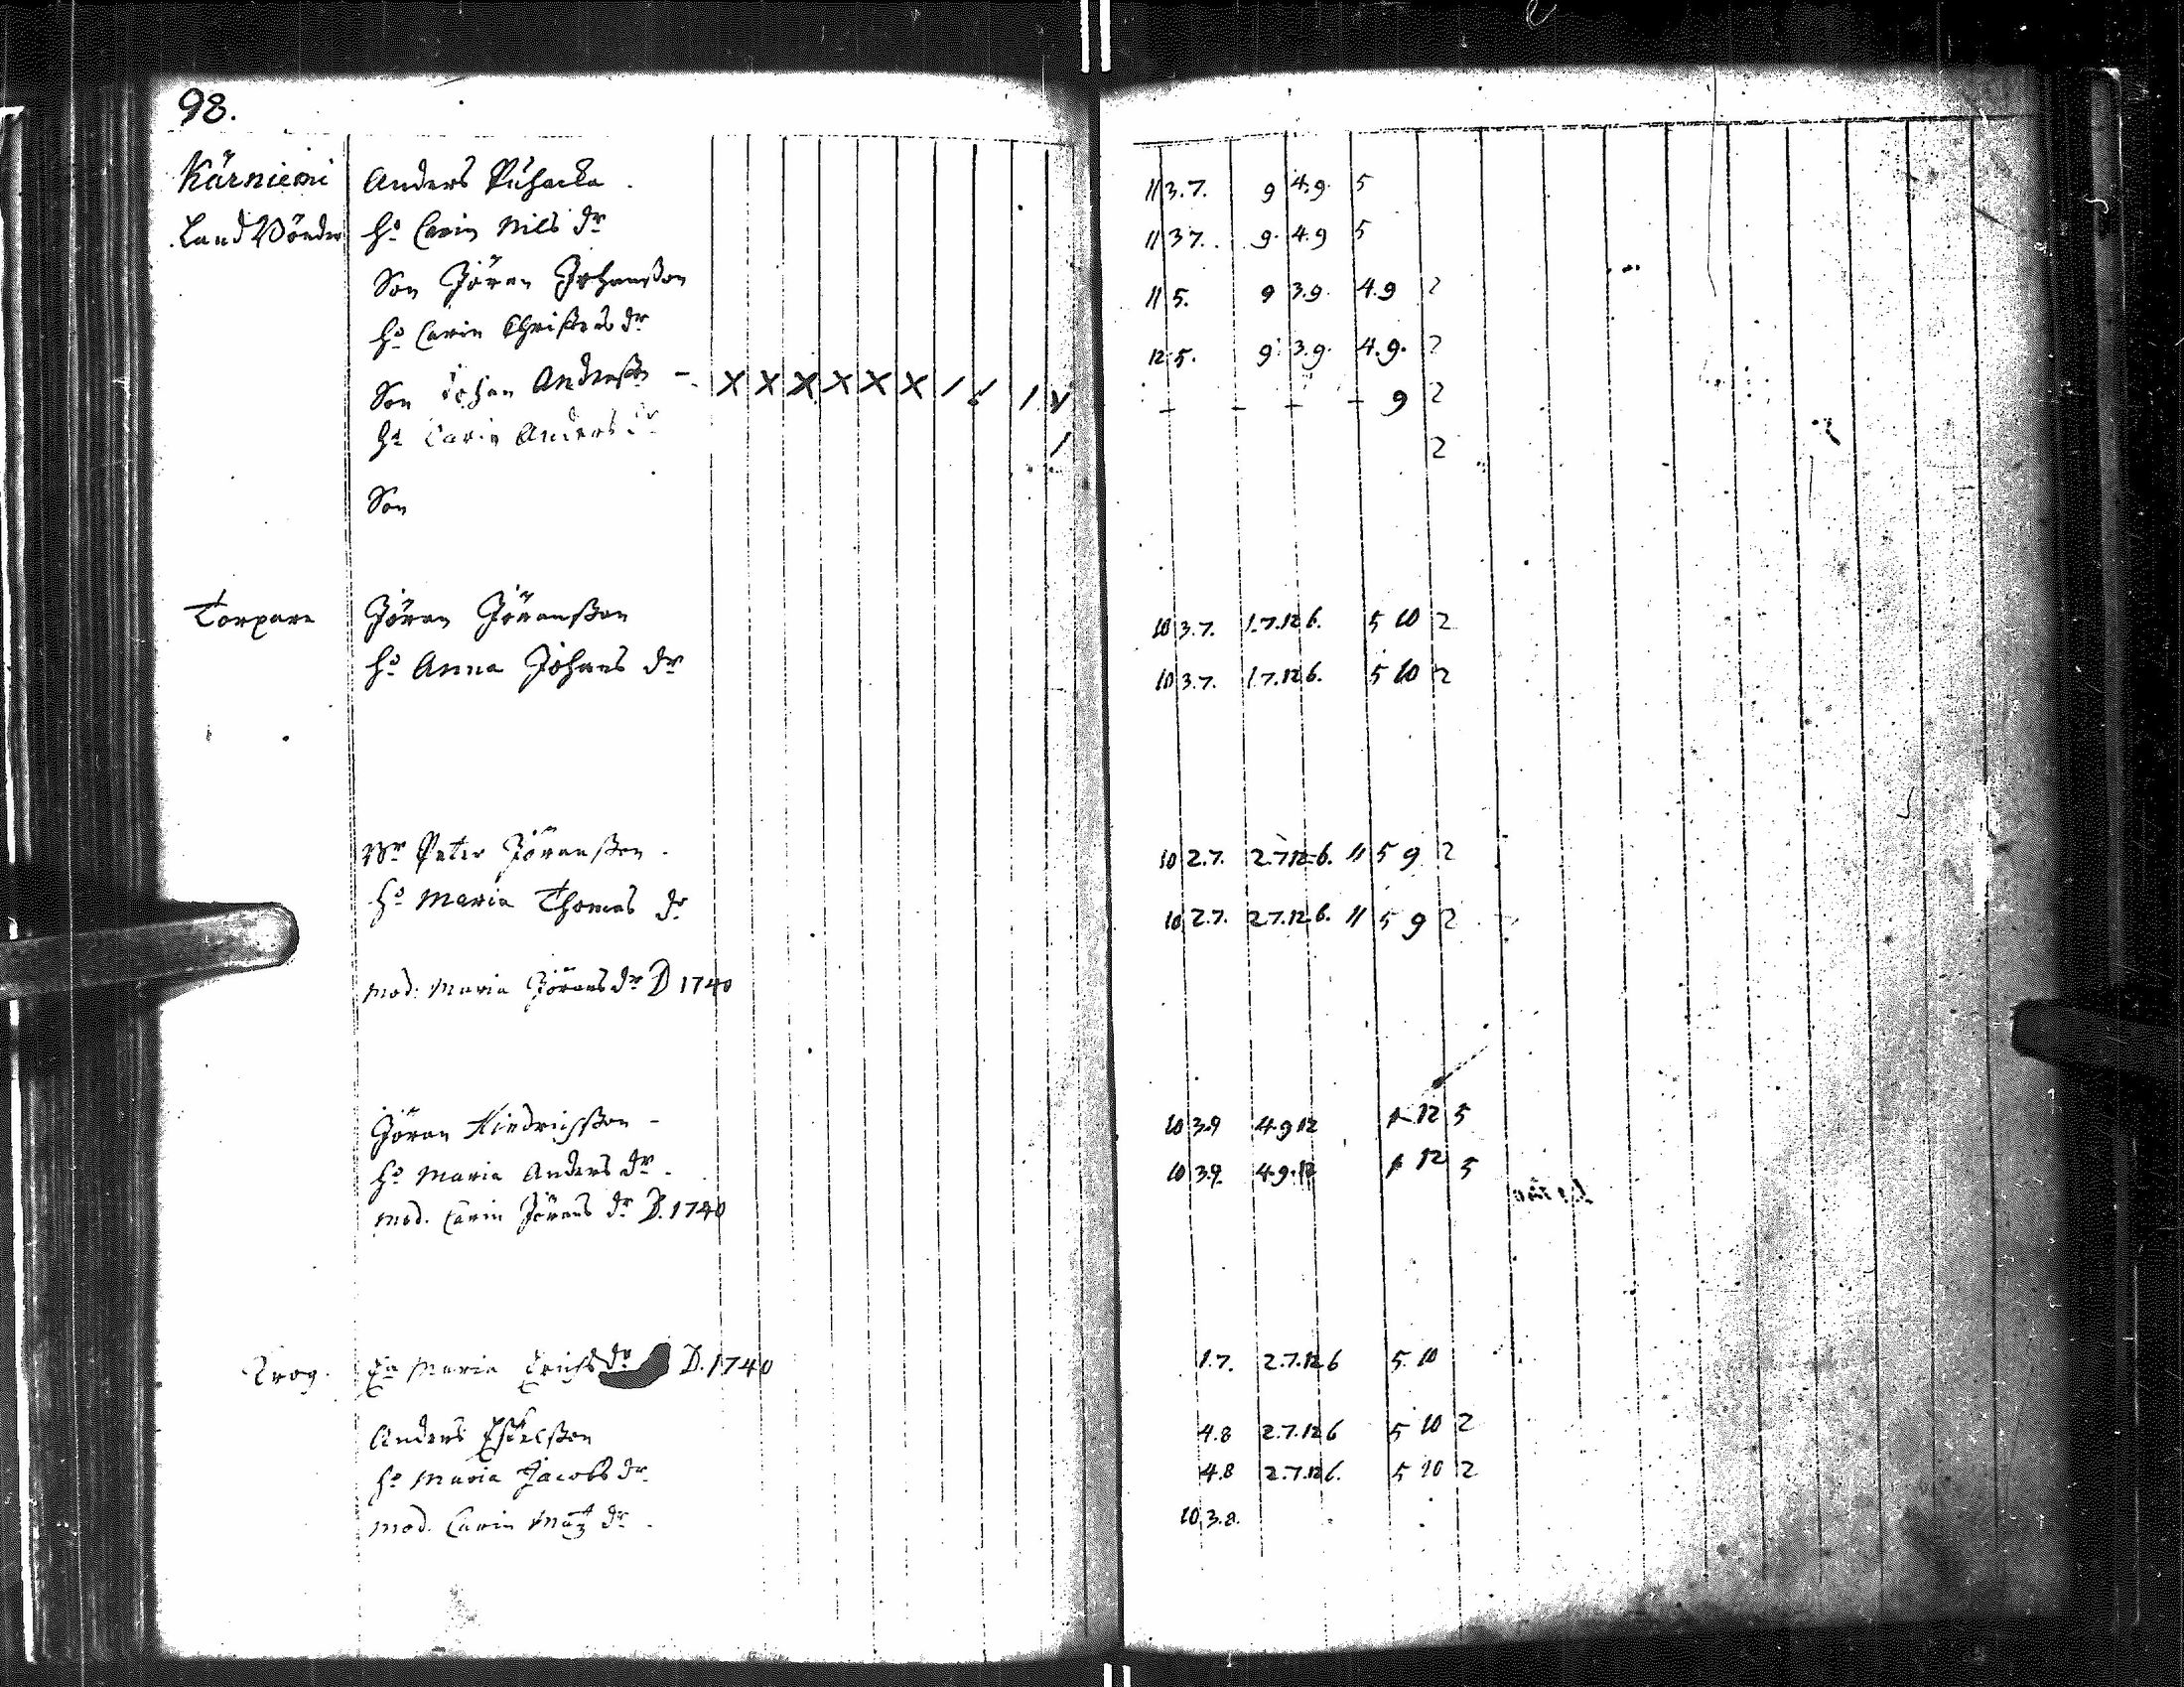 98.
Kärniemi Anders Puhacka. 11 3.7. 9 4.9. 5
Land Bönder H:o Carin Nils dr 11 3 7. 9. 4.9 5
Son Jöran Johansson 11 5. 9 3.9. 4.9 2
H:o Carin Christers dr 12 5. 9. 3.9. 4.9. 2
Son Johan Andersson - X X X X X X / / / V - - - - 9 2
H:o Carin Anders dr / 2
Son
Torpare Jöran Jöransson 10 3.7. 1.7.12 6. 5 10 2
H:o Anna Johans dr 10 3.7. 1.7.12 6. 5 10 2
Br Peter Jöransson. 10 2.7. 2.7.12.6. 11 5 9 2
H:o Maria Thomas dr 10 2.7. 2.7.12.6. 11 5 9 2
Mod: Maria Jörans dr D 1740
Jöran Hindrichsson - 10 3.9 4.9 12 1 12 5
H:o Maria Anders dr. 10 3.9. 4.9.12 1 12 5
Mod. Carin Jörans dr D. 1740
Maria Erichs dr D. 1740 1.7. 2.7.12 6 5. 10
Anders Eskelsson 4.8 2.7.12 6 5 10 2
H:o Maria Jacobs dr 4.8 2.7.12 6. 5 10 2
Mod. Carin Matz dr. 10,3.8.